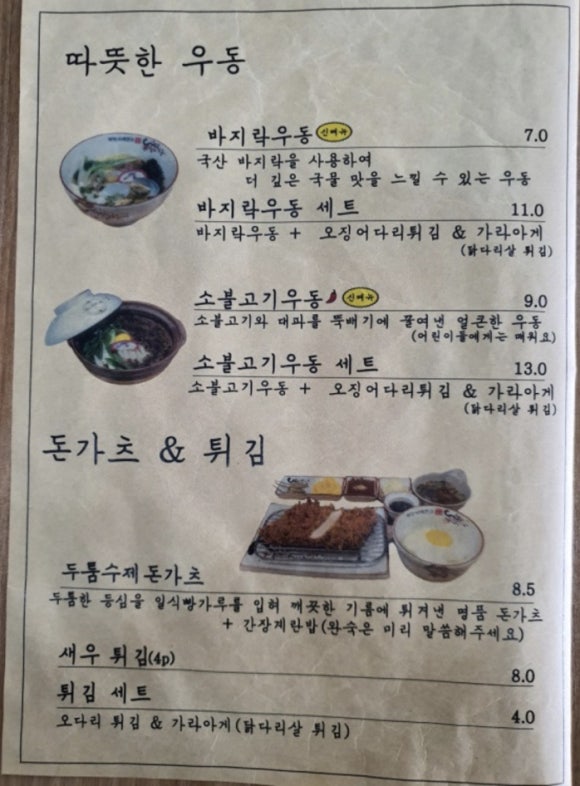 따뜻한 우동
바지락우동 신메뉴 7.0
국산 바지락을 사용하여
더 깊은 국물 맛을 느낄 수 있는 우동
바지락우동 세트 11.0
바지락우동 + 오징어다리튀김 & 가라아게
(닭다리살 튀김)
소불고기우동 신메뉴 9.0
소불고기와 대파를 뚝배기에 끓여낸 얼큰한 우동
(어린이들에게는 매워요)
소불고기우동 세트 13.0
소불고기우동 + 오징어다리튀김 & 가라아게
(닭다리살 튀김)
돈가츠 & 튀김
두툼수제돈가츠 8.5
두툼한 등심을 일식빵가루를 입혀 깨끗한 기름에 튀겨낸 명품 돈가츠
+ 간장계란밥(완숙은 미리 말씀해주세요)
새우 튀김(4p) 8.0
튀김 세트 4.0
오다리 튀김 & 가라아게(닭다리살 튀김)